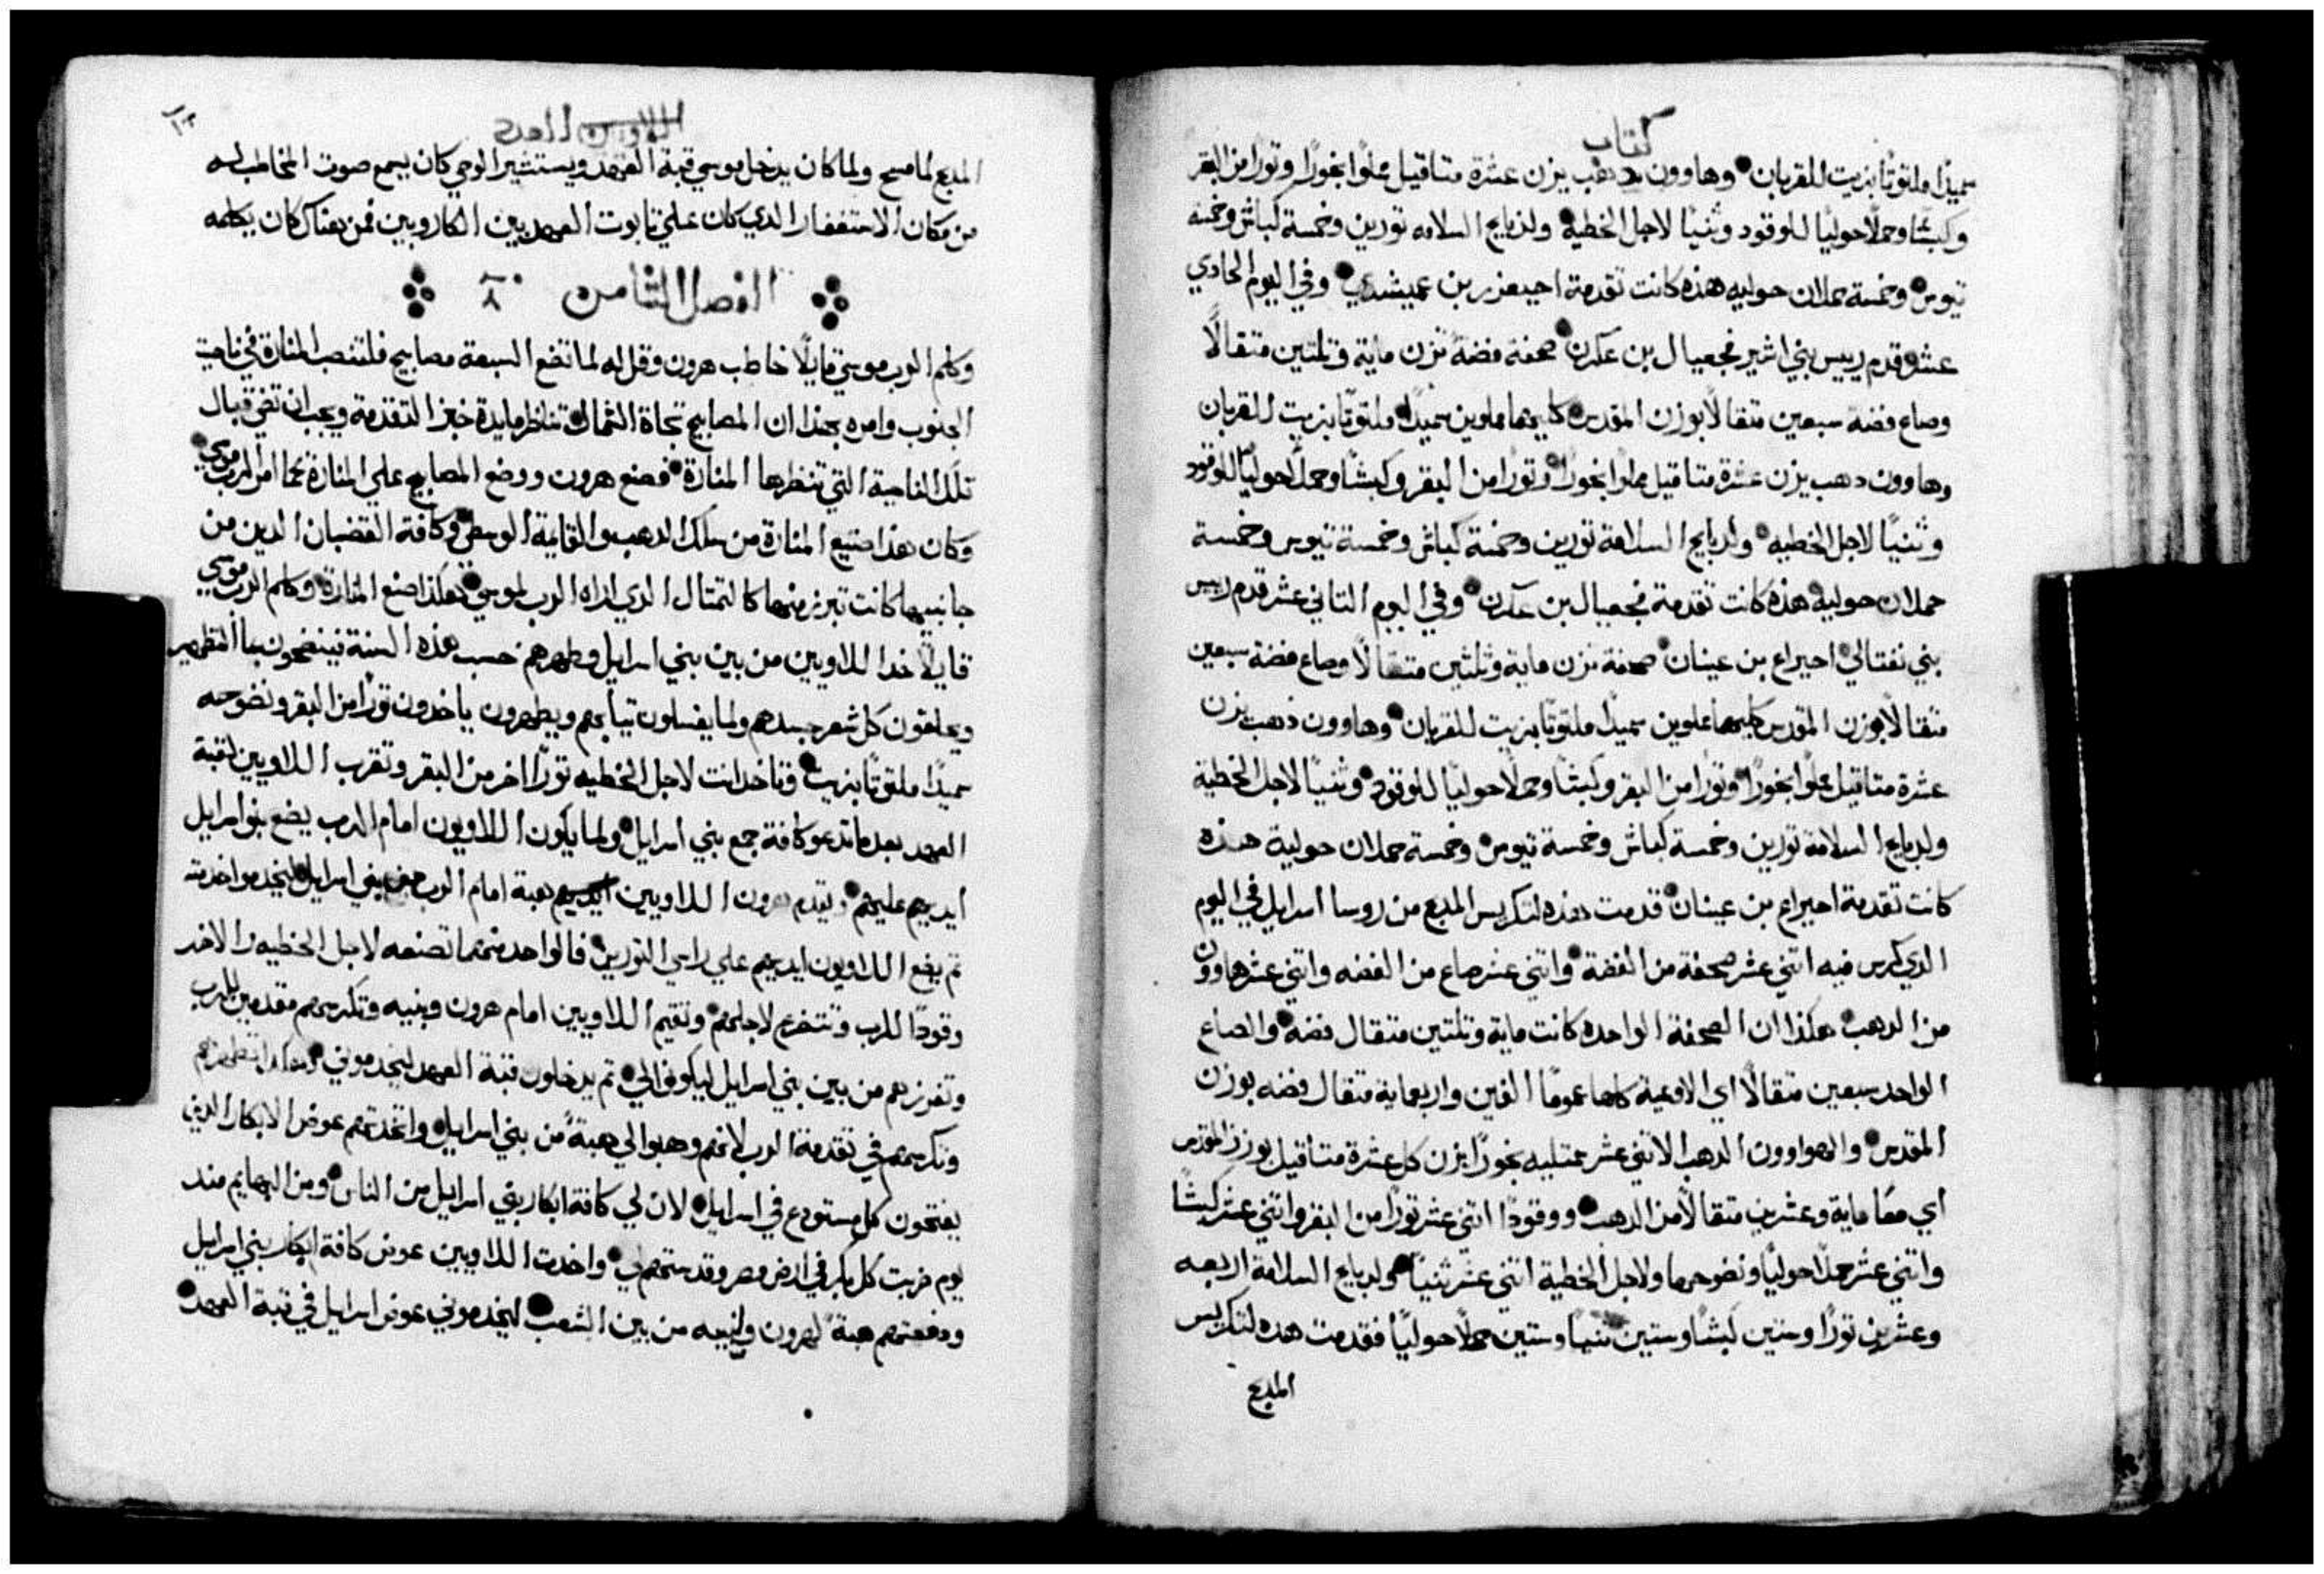 كتاب
سميدًا ملتوتًا بزيت للقربان وهاوون دهب يزن عشرة متاقيل مملوا بخورًا وتورا من البقر
وكبشًا وحملًا حوليًا للوقود وثنيًا لاجل الخطية ولدبايح السلامه تورين وخمسة كباش وخمسة
تيوس وخمسة حملان حوليه هذه كانت تقدمة احيعزر بن عميشدي وفي اليوم الحادي
عشر قدم رييس بني اشير فجعيال بن عكرن صحفة فضة تزن ماية وتلتين متقالًا
وصاع فضة سبعين متقالًا بوزن المقدس كليهما مملوين سميدًا ملتوتًا بزيت للقربان
وهاوون دهب يزن عشرة متاقيل مملوا بخورًا وتورًا من البقر وكبشًا وحملًا حوليًا للوقود
وثنيًا لاجل الخطيه ولدبايح السلامة تورين وخمسة كباش وخمسة تيوس وخمسة
حملان حولية هذه كانت تقدمة فجعيال بن عكرن وفي اليوم التاني عشر قدم رييس
بني نفتالي احيراع بن عينان صحفة تزن ماية وثلثين متقالًا وصاع فضة سبعين
متقالًا بوزن المقدس كليهما مملوين سميدًا ملتوتًا بزيت للقربان وهاوون ذهب يزن
عشرة متاقيل مملوا بخورًا وتورًا من البقر وكبشًا وحملًا حوليًا للوقود وثنيًا لاجل الخطية
ولدبايح السلامة تورين وخمسة كباش وخمسة تيوس وخمسة حملان حولية هذه
كانت تقدمة احيراع بن عينان قدمت هذه لتكريس المدبح من روسا اسرايل في اليوم
الدي كرس فيه اتني عشر صحفة من الفضة واتني عشر صاع من الفضه واتني عشر هاوون
من الدهب هكذا ان الصحفة الواحده كانت ماية وتلتين متقال فضه والصاع
الواحد سبعين متقالًا اي الاوعية كلها عمومًا الفين واربعماية متقال فضه بوزن
المقدس والهواوون الدهب الاتني عشر ممتليه بخورًا يزن كل عشرة متاقيل بوزن المقدس
اي معًا ماية وعشرين متقالًا من الدهب ووقودًا اتني عشر تورًا من البقر واتني عشر كبشًا
واتني عشر حملًا حوليًا ونضوحها ولاجل الخطية اتني عشر ثنيًا ولدبايح السلامة اربعه
وعشرين تورًا وستين كبشًا وستين ثنيًا وستين حملًا حوليًا فقدمت هده لتكريس
المدبح
العدد
المدبح لما مسح ولما كان يدخل موسي قبة العهد ويستشير الوحي كان يسمع صوت المخاطب له
من مكان الاستغفار الدي كان علي تابوت العهد بين الكاروبين فمن هناك كان يكلمه
الفصل الثامن ٨
وكلم الرب موسي قايلًا خاطب هرون وقل له لما تضع السبعة مصابيح فلتنصب المنارة في ناحية
الجنوب وامره بهذا ان المصابيح تجاة الشمال تناظر مايدة خبز التقدمة ويجب ان تضي قبال
تلك الناحية التي تنظرها المنارة فصنع هرون ووضع المصابيح علي المنارة كما امر الرب موسي
وكان هذا صنيع المنارة من سلك الدهب والقايمة الوسطي وكافة القضبان الدين من
جانبيها كانت تبرز منها كالتمتال الدي اراه الرب لموسي هكذا صنع المنارة وكلم الرب موسي
قايلًا خد اللاويين من بين بني اسرايل وطهرهم حسب هذه السنة فينضحون بماْ التطهير
ويحلقون كل شعر جسدهم ولما يغسلون تيابهم ويطهرون ياخدون تورًا من البقر ونضوحه
سميدًا ملتوتًا بزيت وتاخد انت لاجل الخطيه تورًا اخر من البقر وتقرب اللاويين لقبة
العهد بعد ما تدعو كافة جمع بني اسرايل ولما يكون اللاويون امام الرب يضع بنو اسرايل
ايديهم عليهم ويقدم هرون اللاويين هبة امام الرب من بني اسرايل ليخدموا خدمته
تم يضع اللاويون ايديهم علي راسي التورين فالواحد منهما تصنعه لاجل الخطيه والاخر
وقودًا للرب وتتضرع لاجلهم وتقيم اللاويين امام هرون وبنيه وتكرسهم مقدمين للرب
وتفرزهم من بين بني اسرايل ليكونوا لي تم يدخلون قبة العهد ليخدموني وهكدا تطهرهم
وتكرسهم في تقدمة الرب لانهم وهبوا لي هبةً من بني اسرايل واتخدتهم عوض الابكار الدين
يفتحون كل مستودع في اسرايل لان لي كافة ابكار بني اسرايل من الناس ومن البهايم مند
يوم ضربت كل بكر في ارض مصر وقدستهم لي واخدت اللاويين عوض كافة ابكار بني اسرايل
ودفعتهم هبة لهرون وبنيه من بين الشعب ليخدموني عوض اسرايل في قبة العهد